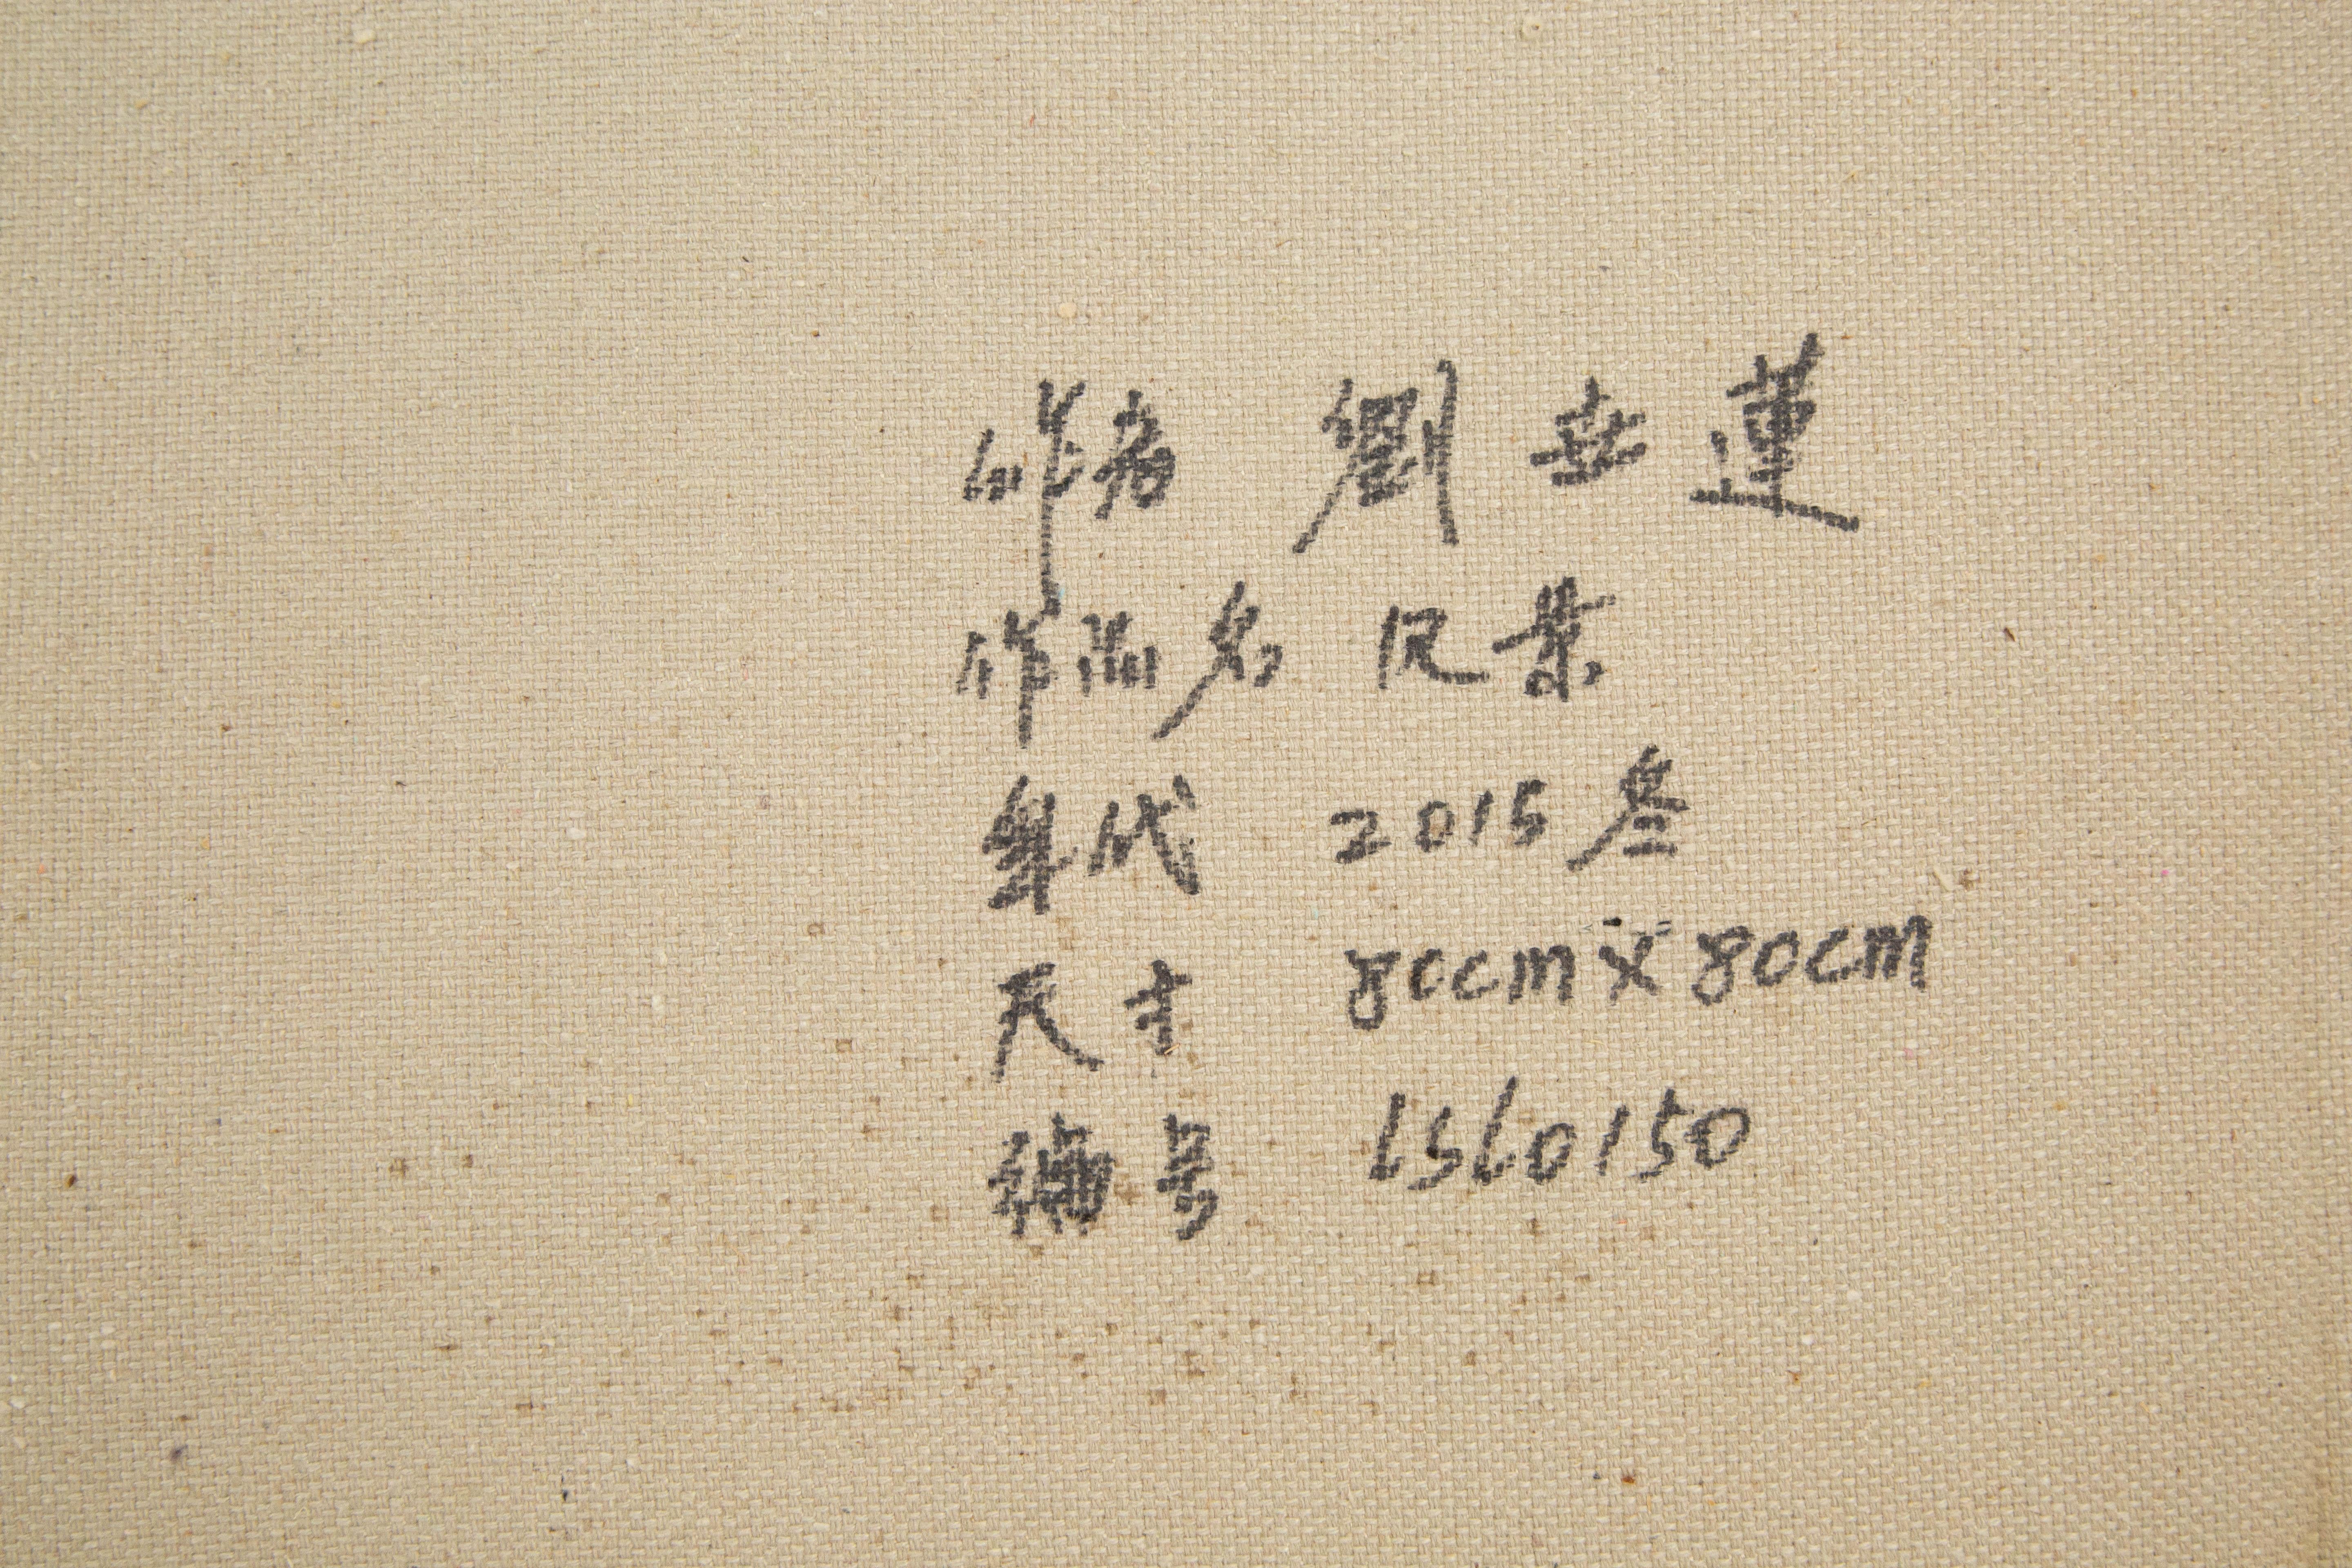 作者 劉世蓮
作品名 风景
年代 2015叁
尺寸 80cm×80cm
编号 LSL0150